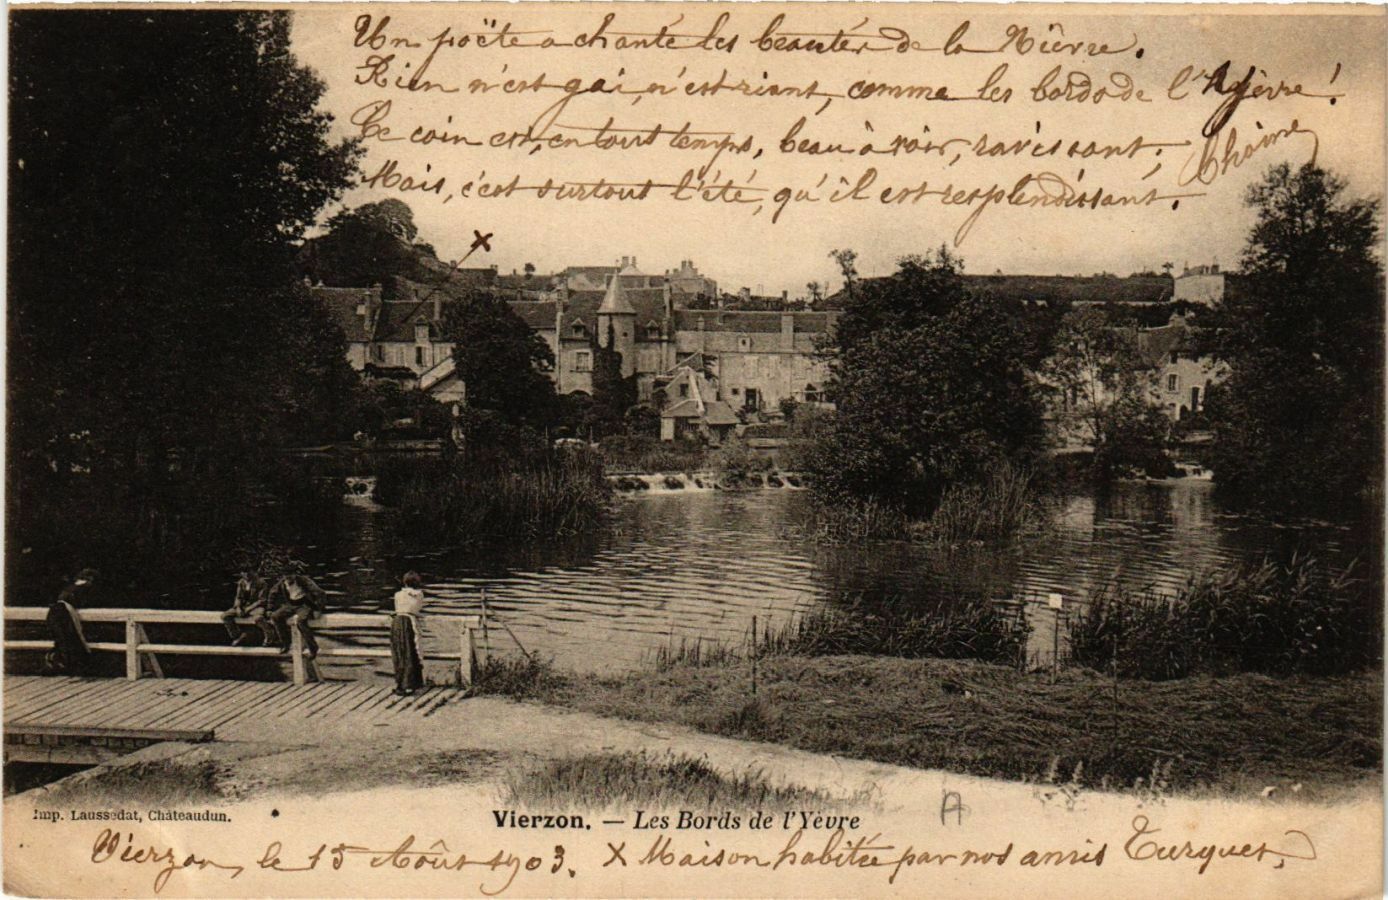 Un poëte a chanté les beautés de la Nièvre.
Rien n'est gai, n'est riant, comme les bords de l'Yèvre!
Ce coin est, en tout temps, beau à voir, ravissant;
Mais, c'est surtout l'été, qu'il est resplendissant.
x
Imp. Laussedat, Châteaudun.
Vierzon. — Les Bords de l'Yèvre
A
Vierzon, le 15 Août 1903. x Maison habitée par nos amis